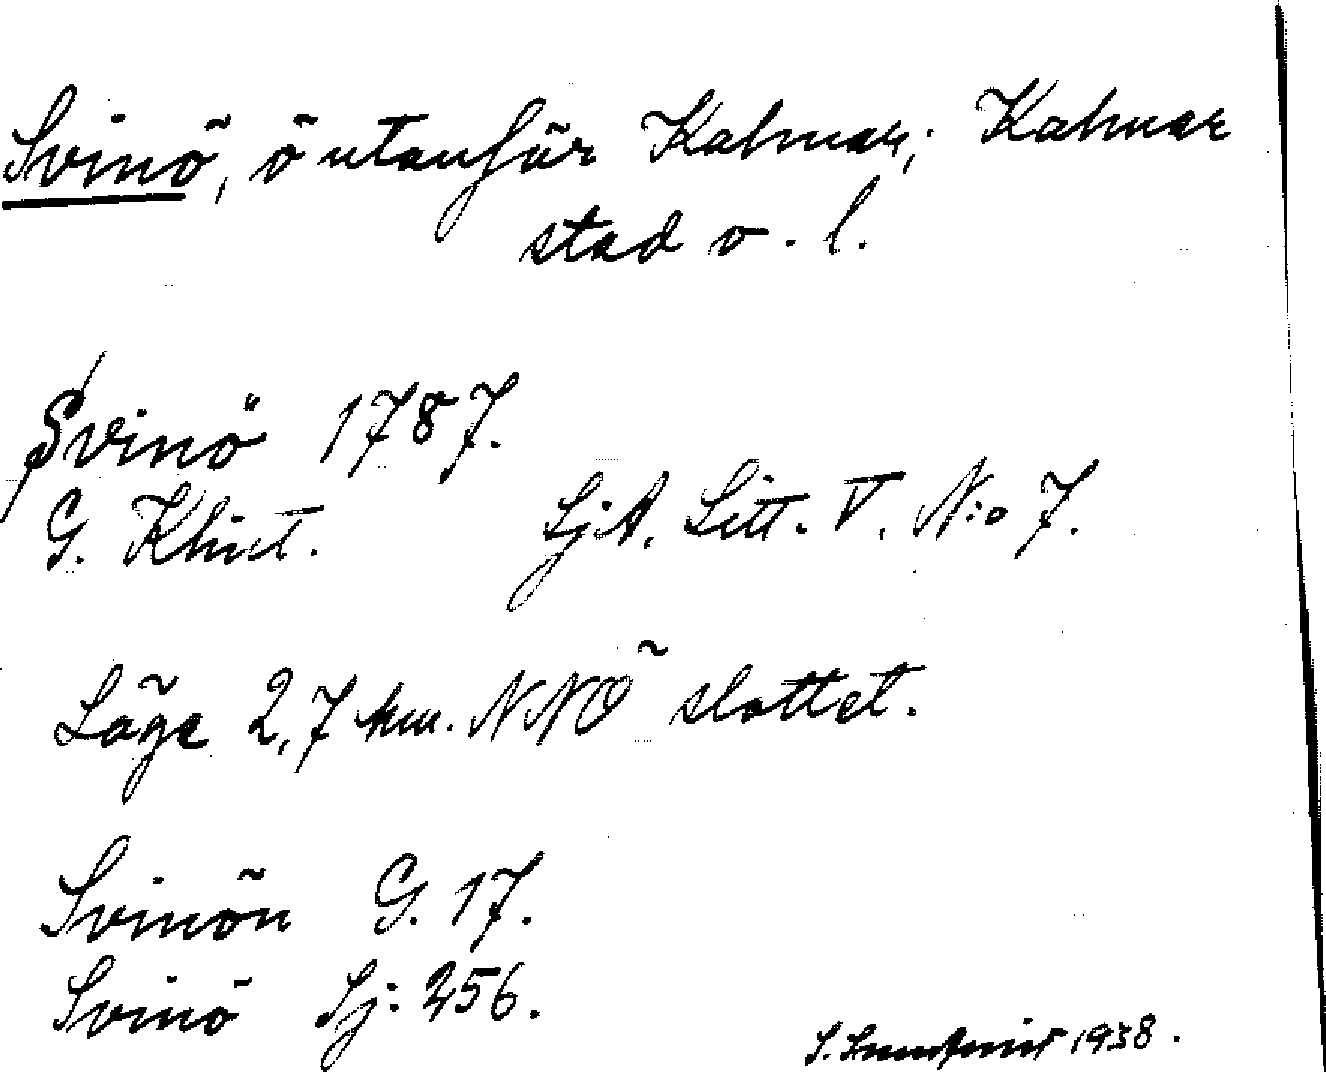 Svinö, ö utanför Kalmar; Kalmar
stad o. l.
Svinö 1787.
G. Klint. SjA. Litt. V. N:o 7.
Läge 2,7 km. NNÖ slottet.
Svinön G. 17.
Svinö Sj: 256.
S. 1938.